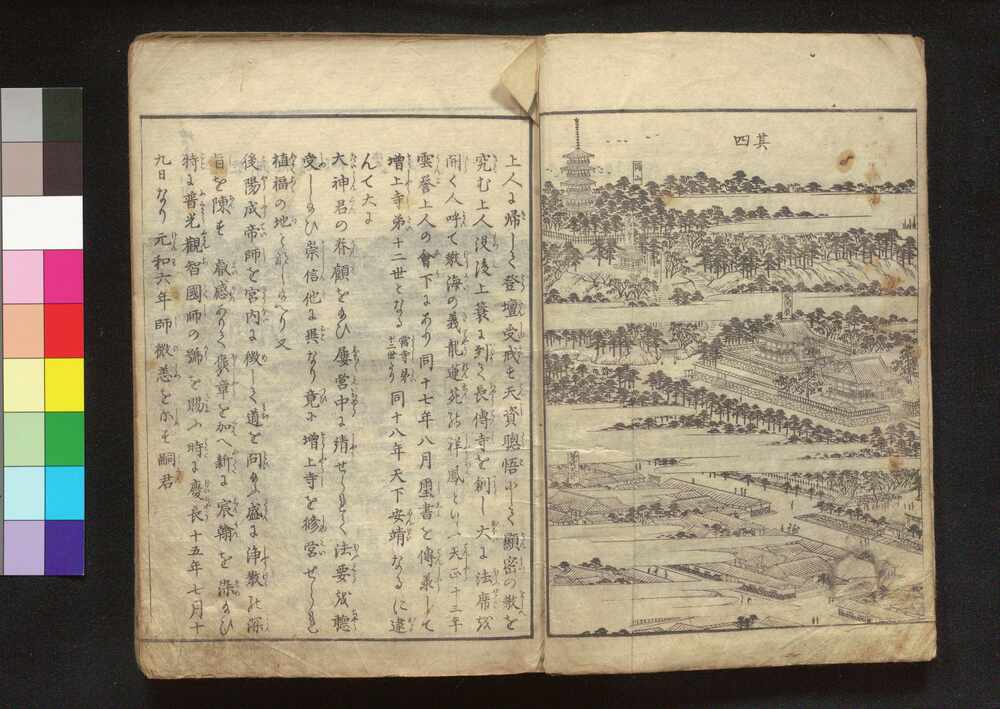 其四
上人に帰して登壇受戒す天資聡悟にして顕密の教を
究む上人没後上簔に到て長傳寺を創し大に法席を
開く人呼て教海の義龍蓮苑の祥鳳といへり天正十二年
雲誉上人の會下にあり同十七年八月璽書を傳承して
増上寺第十二世となる同十八年天下安靖なるに違
んて大に
大神君の眷顧をかうむり屡営中に請せられて法要を聴
受したまひ崇信他に異なり竟に増上寺を修営せられ
植福の地となしたまへり又
後陽成帝師を宮内に徴して道を問ふ盛に浄教の深
旨を陳す叡感ありて褒章を加へ新に宸翰を染たまひ
特に普光觀智國師の號を賜ふ時に慶長十五年七月十
九日なり元和六年師微恙を示す嗣君